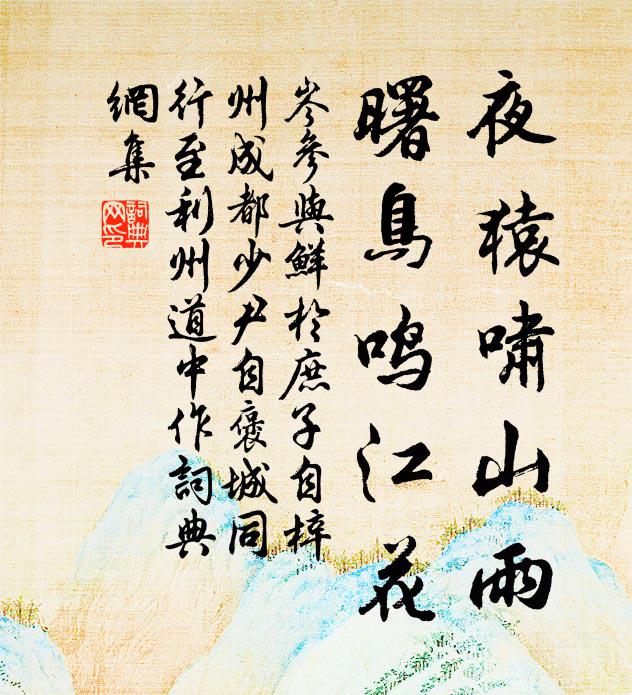 夜猿嘯山雨
曙鳥鳴江花
岑參與鮮於庶子自梓
州成都少尹自褒城同
行至利州道中作詞典
網集
詞典網印